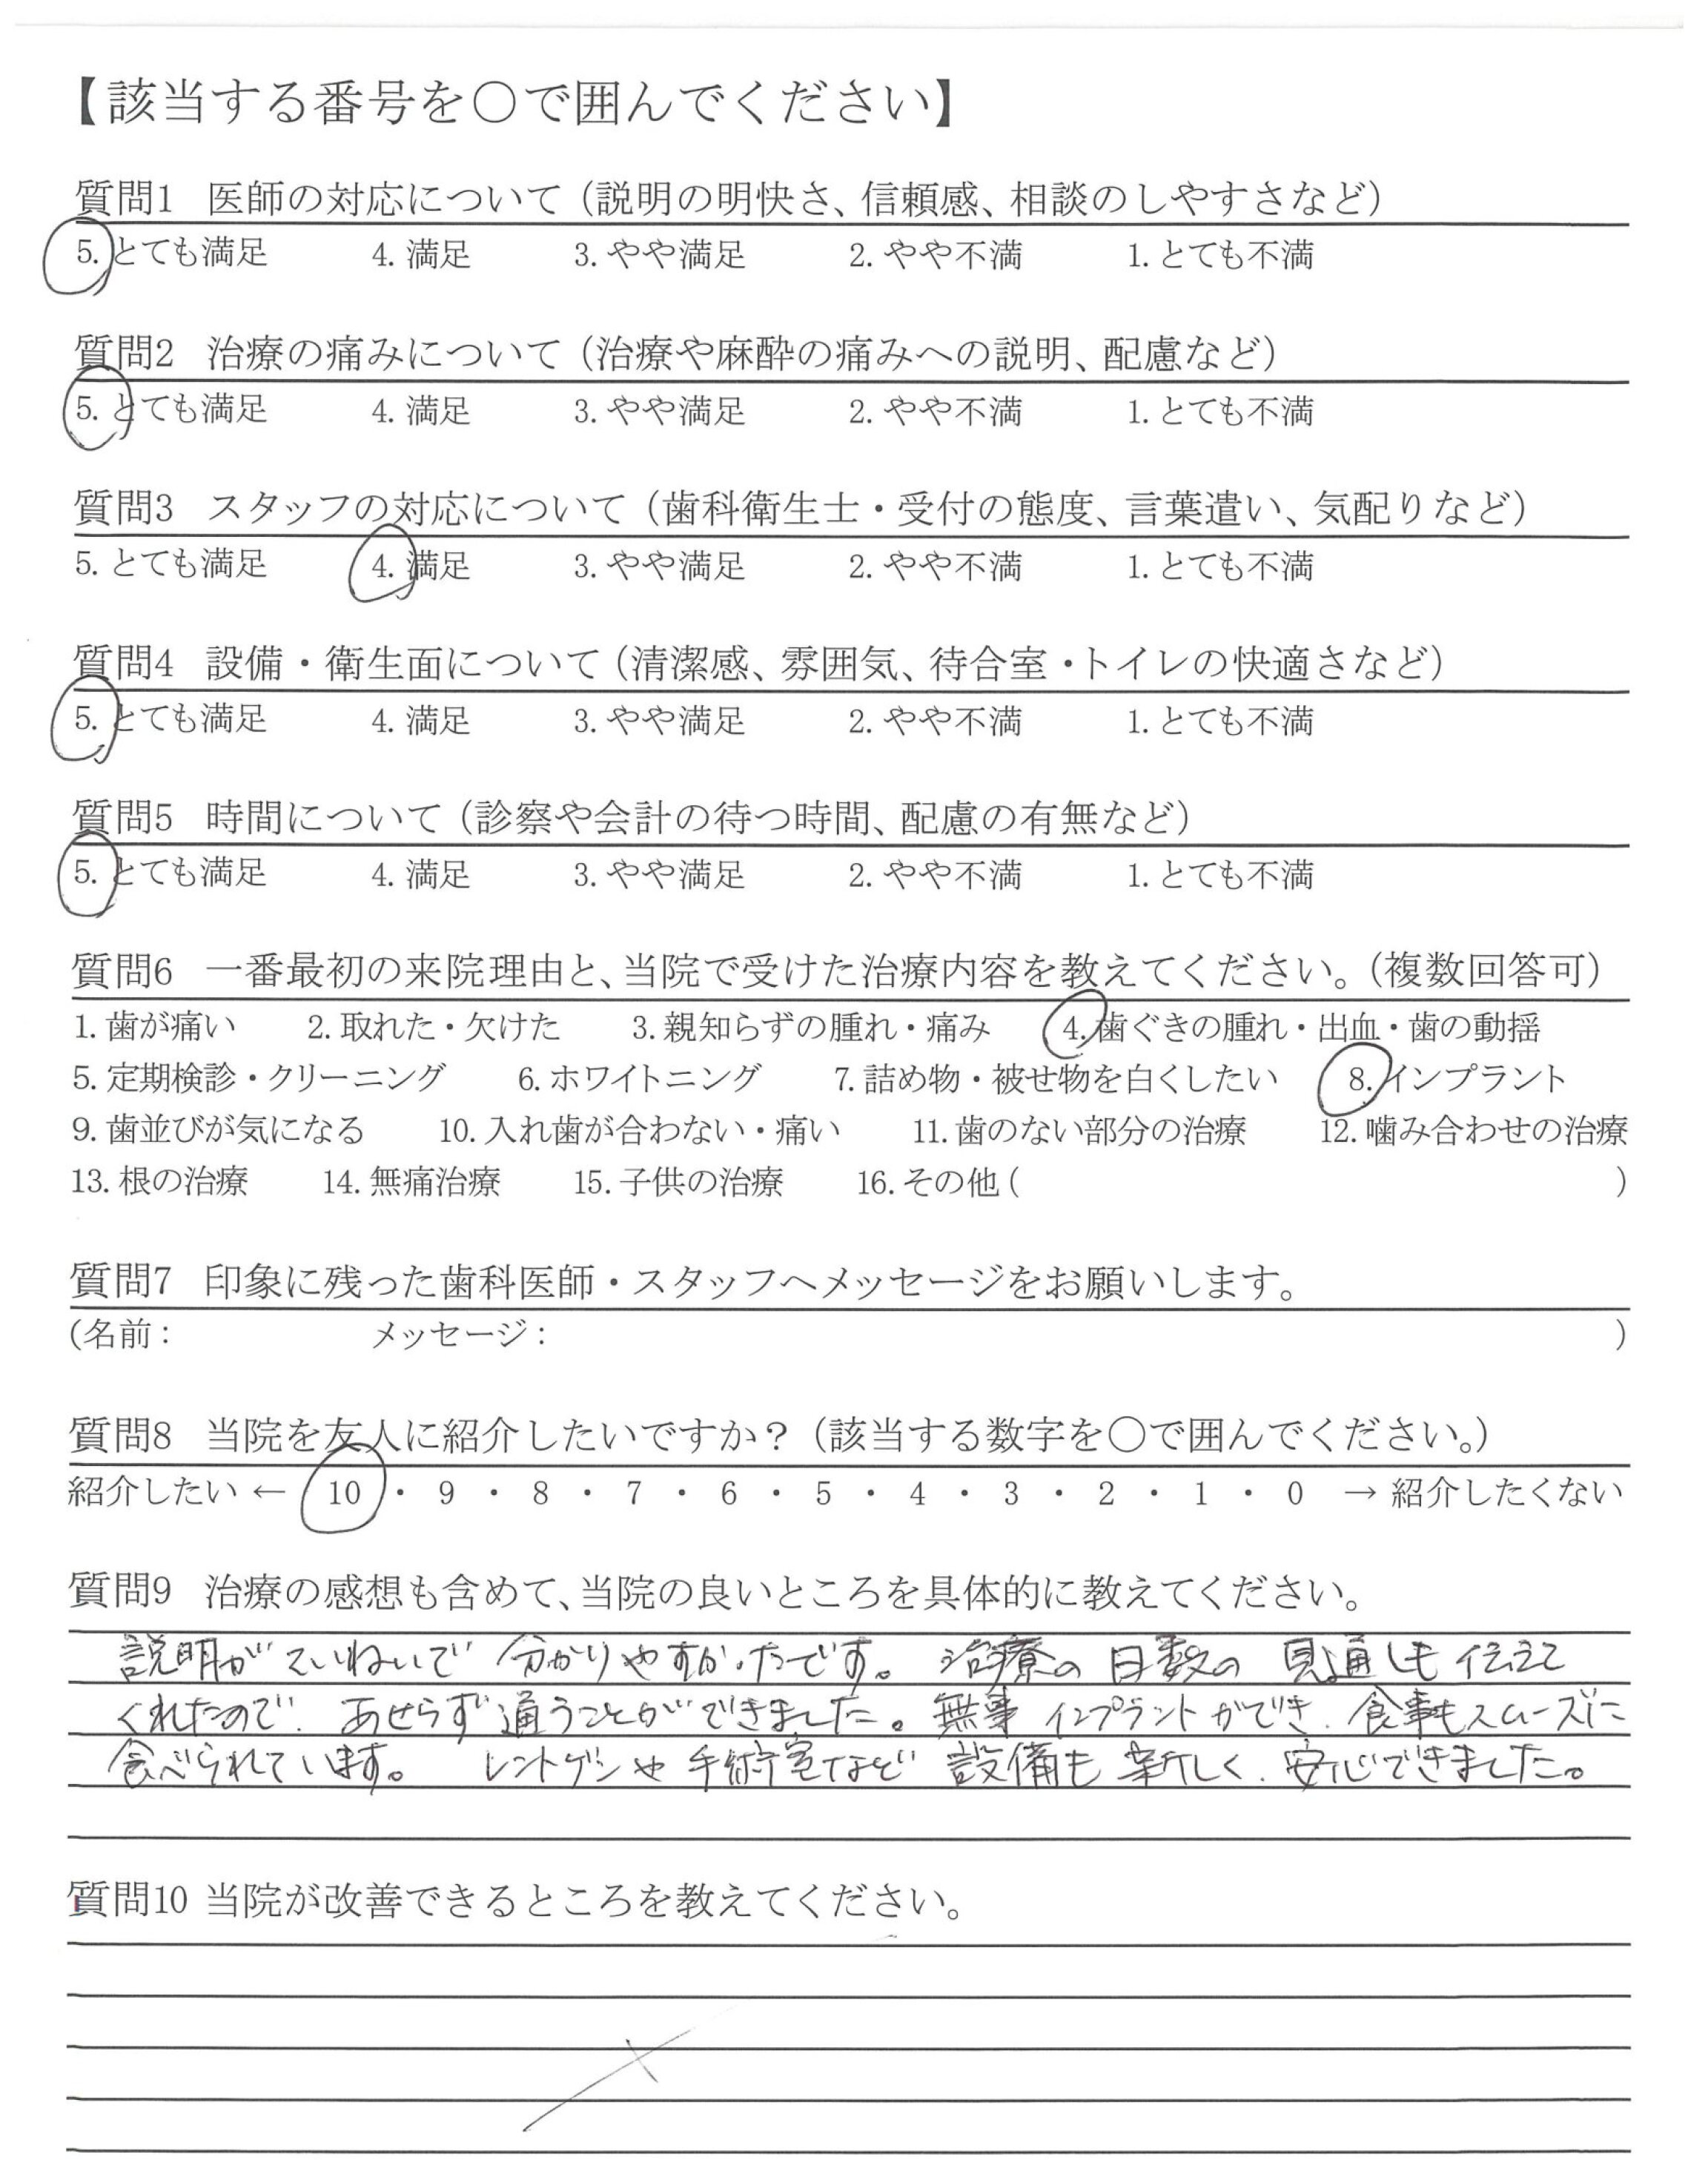 【該当する番号を○で囲んでください】
質問1 医師の対応について（説明の明快さ、信頼感、相談のしやすさなど）
5. とても満足 4. 満足 3. やや満足 2. やや不満 1. とても不満
質問2 治療の痛みについて（治療や麻酔の痛みへの説明、配慮など）
5. とても満足 4. 満足 3. やや満足 2. やや不満 1. とても不満
質問3 スタッフの対応について（歯科衛生士・受付の態度、言葉遣い、気配りなど）
5. とても満足 4. 満足 3. やや満足 2. やや不満 1. とても不満
質問4 設備・衛生面について（清潔感、雰囲気、待合室・トイレの快適さなど）
5. とても満足 4. 満足 3. やや満足 2. やや不満 1. とても不満
質問5 時間について（診察や会計の待つ時間、配慮の有無など）
5. とても満足 4. 満足 3. やや満足 2. やや不満 1. とても不満
質問6 一番最初の来院理由と、当院で受けた治療内容を教えてください。（複数回答可）
1. 歯が痛い 2. 取れた・欠けた 3. 親知らずの腫れ・痛み 4. 歯ぐきの腫れ・出血・歯の動揺
5. 定期検診・クリーニング 6. ホワイトニング 7. 詰め物・被せ物を白くしたい 8. インプラント
9. 歯並びが気になる 10. 入れ歯が合わない・痛い 11. 歯のない部分の治療 12. 噛み合わせの治療
13. 根の治療 14. 無痛治療 15. 子供の治療 16. その他（ ）
質問7 印象に残った歯科医師・スタッフへメッセージをお願いします。
（名前： メッセージ： ）
質問8 当院を友人に紹介したいですか？（該当する数字を○で囲んでください。）
紹介したい ← 10 ・ 9 ・ 8 ・ 7 ・ 6 ・ 5 ・ 4 ・ 3 ・ 2 ・ 1 ・ 0 → 紹介したくない
質問9 治療の感想も含めて、当院の良いところを具体的に教えてください。
説明がていねいで 分かりやすかったです。治療の日数の見通しも伝えて
くれたので、あせらず通うことができました。無事インプラントができ、食事もスムーズに
食べられています。 レントゲンや手術室など設備も新しく、安心できました。
質問10 当院が改善できるところを教えてください。